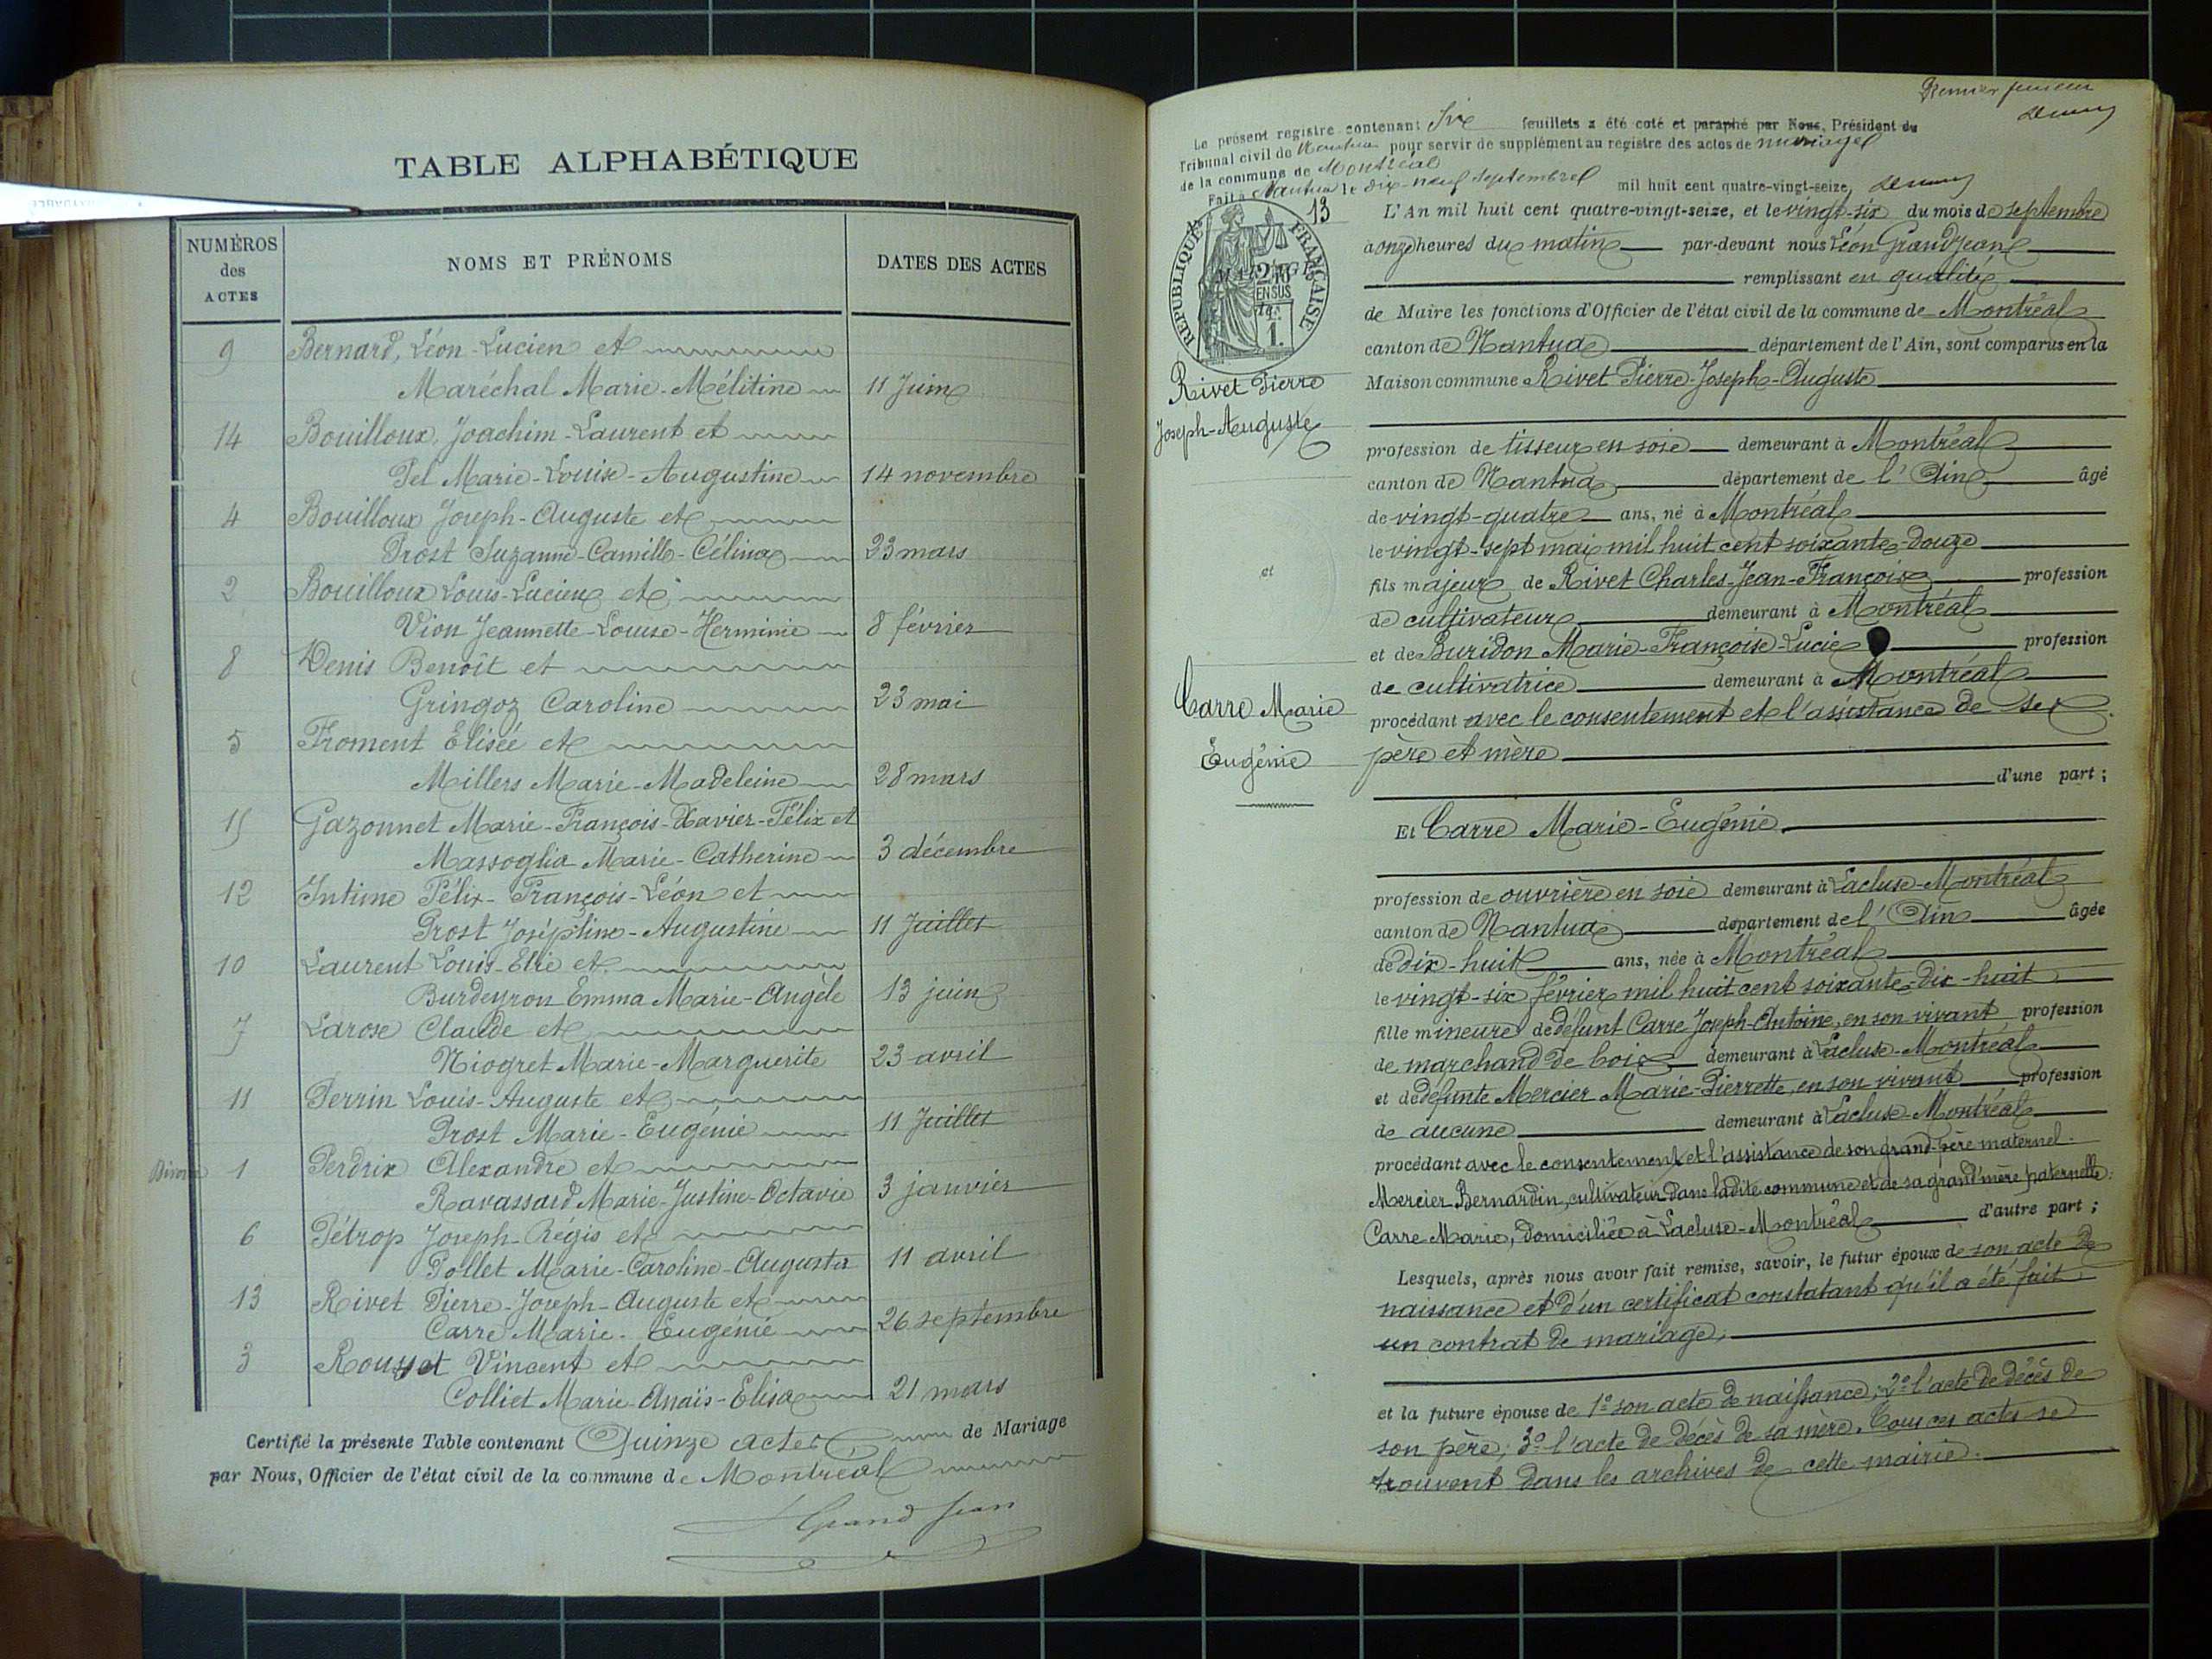 TABLE ALPHABÉTIQUE
NUMÉROS des ACTES
NOMS ET PRÉNOMS
DATES DES ACTES
9 Bernard, Léon-Lucien et
Maréchal Marie-Mélitine 11 Juin
14 Bouilloux, Joachim-Laurent et
Pel Marie-Louise-Augustine 14 novembre
4 Bouilloux Joseph-Auguste et
Prost Suzanne-Camille-Célina 23 mars
2 Bouilloux Louis-Lucien et
Vion Jeannette-Louise-Herminie 8 février
8 Denis Benoît et
Gringoz Caroline 23 mai
5 Froment Elisée et
Millers Marie-Madeleine 28 mars
15 Gazonnet Marie-François-Xavier-Félix et
Massoglia Marie-Catherine 3 décembre
12 Intime Félix-François-Léon et
Prost Joséphine-Augustine 11 Juillet
10 Laurent Louis-Elie et
Burdeyron Emma Marie-Angèle 13 juin
7 Larose Claude et
Niogret Marie-Marguerite 23 avril
11 Perrin Louis-Auguste et
Prost Marie-Eugénie 11 Juillet
Divorce 1 Perdrix Alexandre et
Ravassard Marie-Justine-Octavie 3 janvier
6 Pétrop Joseph-Régis et
Pollet Marie-Caroline-Augusta 11 avril
13 Rivet Pierre-Joseph-Auguste et
Carre Marie-Eugénie 26 septembre
3 Rousset Vincent et
Colliet Marie-Anaïs-Elisa 21 mars
Certifié la présente Table contenant Quinze actes de Mariage
par Nous, Officier de l'état civil de la commune de Montréal
Grand Jean
Premier
Le présent registre contenant Six feuillets a été coté et paraphé par Nous, Président du
Tribunal civil de Nantua pour servir de supplément au registre des actes de mariages
de la commune de Montréal
Fait à Nantua le dix-neuf septembre mil huit cent quatre-vingt-seize
RÉPUBLIQUE FRANÇAISE
EN SUS
13
L'An mil huit cent quatre-vingt-seize, et le vingt-six du mois de septembre
à onze heures du matin par-devant nous Léon Grandjean
remplissant en qualité
de Maire les fonctions d'Officier de l'état civil de la commune de Montréal
canton de Nantua département de l'Ain, sont comparus en la
Rivet Pierre
Joseph-Auguste
et
Carre Marie
Eugénie
Maison commune Rivet Pierre-Joseph-Auguste
profession de tisseur en soie demeurant à Montréal
canton de Nantua département de l'Ain âgé
de vingt-quatre ans, né à Montréal
le vingt-sept mai mil huit cent soixante-douze
fils majeur de Rivet Charles-Jean-François profession
de cultivateur demeurant à Montréal
et de Buridon Marie-Françoise-Lucie profession
de cultivatrice demeurant à Montréal
procédant avec le consentement et l'assistance de ses
père et mère
d'une part ;
Et Carre Marie-Eugénie
profession de ouvrière en soie demeurant à Lacluse-Montréal
canton de Nantua département de l'Ain âgée
de dix-huit ans, née à Montréal
le vingt-six février mil huit cent soixante-dix-huit
fille mineure de défunt Carre Joseph-Antoine, en son vivant profession
de marchand de bois demeurant à Lacluse-Montréal
et de défunte Mercier Marie-Pierrette, en son vivant profession
de aucune demeurant à Lacluse-Montréal
procédant avec le consentement et l'assistance de son grand-père maternel
Mercier Bernardin, cultivateur dans ladite commune et de sa grand'mère paternelle
Carre Marie, domiciliée à Lacluse-Montréal d'autre part ;
Lesquels, après nous avoir fait remise, savoir, le futur époux de son acte de
naissance et d'un certificat constatant qu'il a été fait
un contrat de mariage ;
et la future épouse de 1° son acte de naissance ; 2° l'acte de décès de
son père ; 3° l'acte de décès de sa mère. Tous ces actes se
trouvent dans les archives de cette mairie.